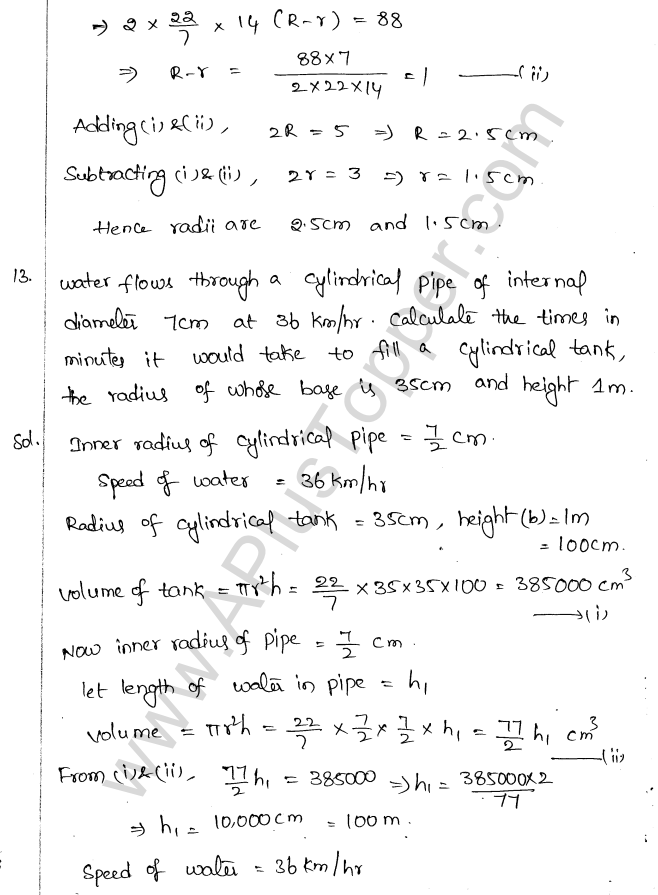 ⇒ 2 × 22/7 × 14 (R-r) = 88
⇒ R-r = 88×7 / 2×22×14 = 1 ——(ii)
Adding (i) & (ii), 2R = 5 ⇒ R = 2.5cm
Subtracting (i) & (ii), 2r = 3 ⇒ r = 1.5cm.
Hence radii are 2.5cm and 1.5cm.
13. water flows through a cylindrical pipe of internal
diameter 7cm at 36 km/hr. calculate the times in
minutes it would take to fill a cylindrical tank,
the radius of whose base is 35cm and height 1m.
Sol. Inner radius of cylindrical pipe = 7/2 cm.
Speed of water = 36 km/hr
Radius of cylindrical tank = 35cm, height (b) = 1m
= 100cm.
volume of tank = πr²h = 22/7 × 35×35×100 = 385000 cm³
——→(i)
Now inner radius of pipe = 7/2 cm.
let length of water in pipe = h₁
volume = πr²h = 22/7 × 7/2 × 7/2 × h₁ = 77/2 h₁ cm³
——(ii)
From (i) & (ii), 77/2 h₁ = 385000 ⇒ h₁ = 385000×2/77
⇒ h₁ = 10,000cm = 100m.
Speed of water = 36 km/hr
www.APlusTopper.com